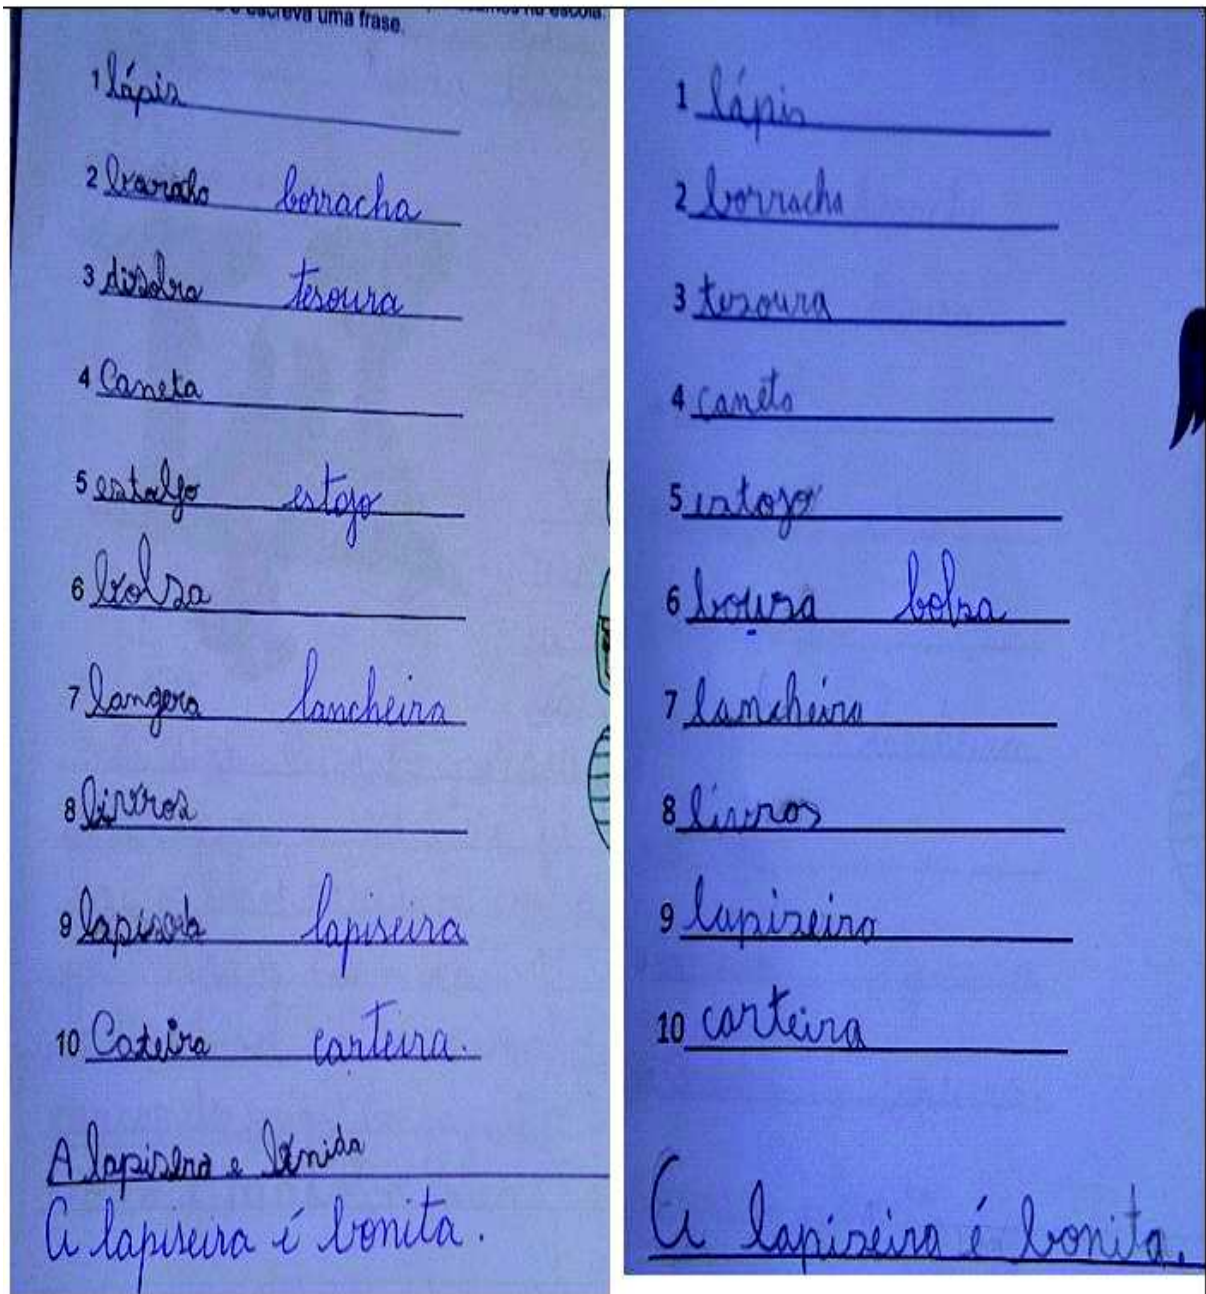 escreva uma frase.
na escola.
1 lápis
2 borracha
3 tesoura
4 Caneta
5 estojo
6 bolsa
7 langera lancheira
8 livros
9 lapiseira
10 Cateira carteira.
A lapisera e
A lapiseira é bonita.
1 lápis
2 borracha
3 tesoura
4 caneta
5 estojo
6 bousa bolsa
7 lancheira
8 livros
9 lapiseira
10 carteira
A lapiseira é bonita.